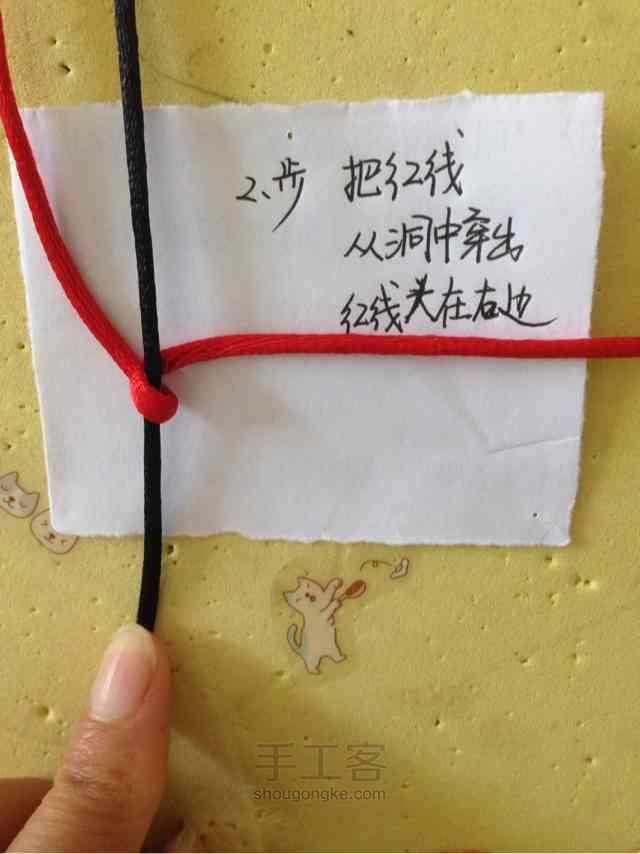 2、步 把红线
从洞中穿出
红线头在右边
手工客
shougongke.com